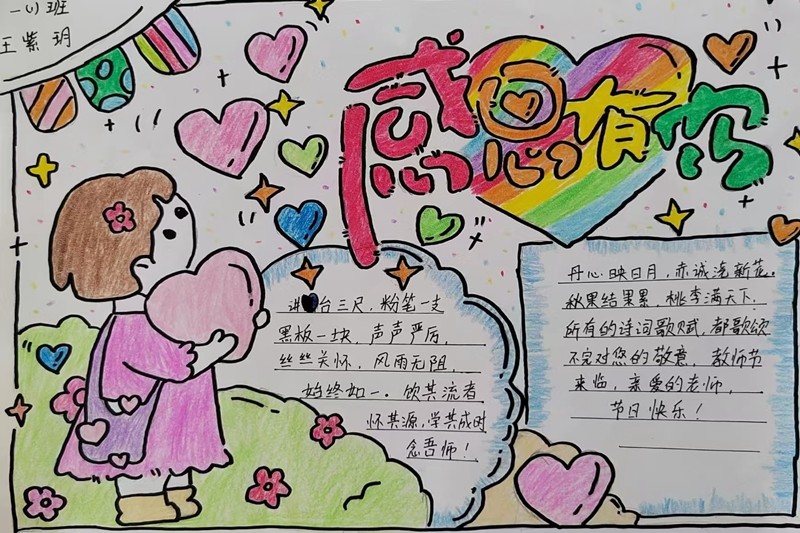 一(1)班
王紫玥
感恩有你
讲台三尺，粉笔一支
黑板一块，声声严厉，
丝丝关怀，风雨无阻，
始终如一。饮其流者
怀其源，学其成时
念吾师！
丹心映日月，赤诚浇新花。
秋果结累累，桃李满天下，
所有的诗词歌赋，都歌颂
不完对您的敬意，教师节
来临，亲爱的老师，
节日快乐！